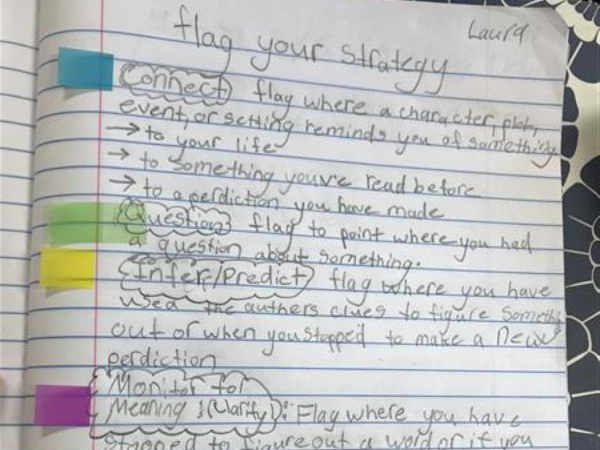 Laura
flag your strategy
Connect flag where a character, plot,
event, or setting reminds you of something
→ to your life
→ to something you've read before
→ to a perdiction you have made
Question flag to point where you had
a question about something.
Infer/Predict flag where you have
used the authers clues to figure something
out or when you stopped to make a new
perdiction
Monitor for
Meaning (Clarify): Flag where you have
stopped to figure out a word or if you